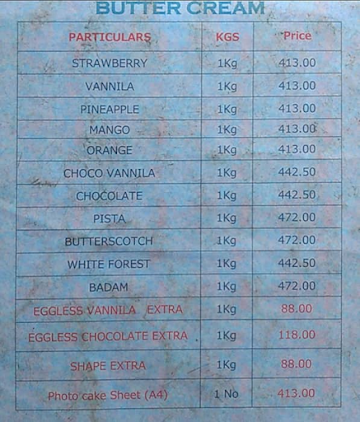 BUTTER CREAM
PARTICULARS KGS Price
STRAWBERRY 1Kg 413.00
VANNILA 1Kg 413.00
PINEAPPLE 1Kg 413.00
MANGO 1Kg 413.00
ORANGE 1Kg 413.00
CHOCO VANNILA 1Kg 442.50
CHOCOLATE 1Kg 442.50
PISTA 1Kg 472.00
BUTTERSCOTCH 1Kg 472.00
WHITE FOREST 1Kg 442.50
BADAM 1Kg 472.00
EGGLESS VANNILA EXTRA 1Kg 88.00
EGGLESS CHOCOLATE EXTRA 1Kg 118.00
SHAPE EXTRA 1Kg 88.00
Photo cake Sheet (A4) 1 No 413.00